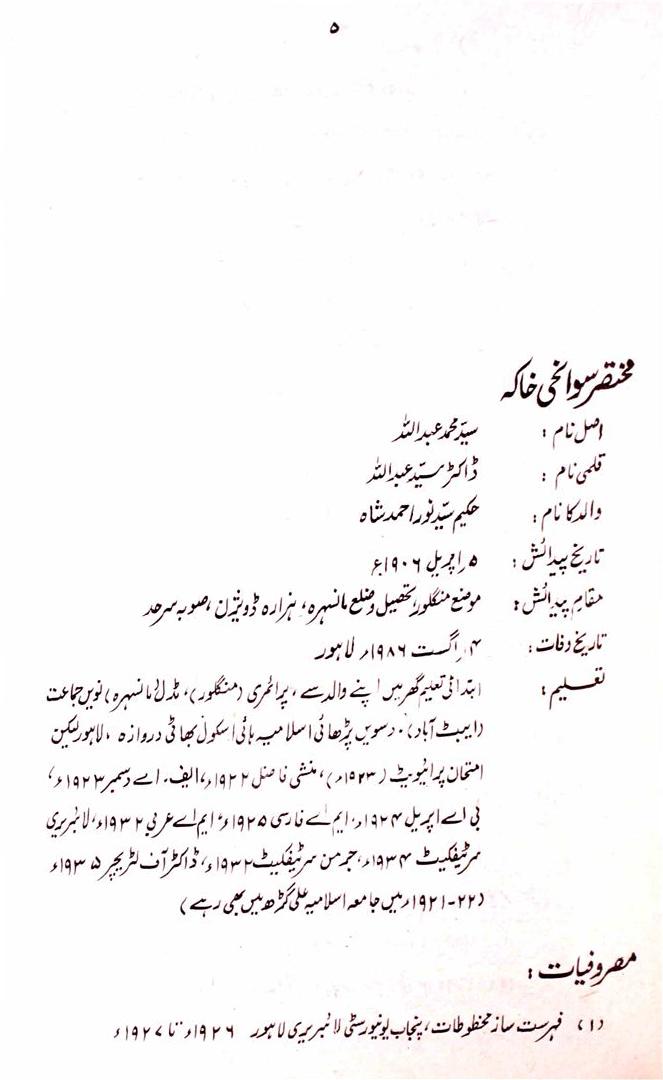 ۵
مختصر سوانحی خاکہ
اصل نام : سیّد محمد عبداللہ
قلمی نام : ڈاکٹر سیّد عبداللہ
والد کا نام : حکیم سیّد نور احمد شاہ
تاریخ پیدائش : ۵ اپریل ۱۹۰۶ء
مقام پیدائش : موضع منگلور، تحصیل و ضلع مانسہرہ، ہزارہ ڈویژن، صوبہ سرحد
تاریخ وفات : ۱۴ اگست ۱۹۸۶ء لاہور
تعلیم : ابتدائی تعلیم گھر میں اپنے والد سے، پرائمری (منگلور)، مڈل (مانسہرہ) نویں جماعت
(ایبٹ آباد)۔ دسویں پڑھائی اسلامیہ ہائی اسکول بھاٹی دروازہ، لاہور لیکن
امتحان پرائیویٹ (۱۹۲۳ء)، منشی فاضل ۱۹۲۲ء، ایف۔ اے دسمبر ۱۹۲۳ء،
بی اے اپریل ۱۹۲۴ء، ایم اے فارسی ۱۹۲۵ء، ایم اے عربی ۱۹۳۲ء، لائبریری
سرٹیفکیٹ ۱۹۳۴ء، جرمن سرٹیفکیٹ ۱۹۳۲ء، ڈاکٹر آف لٹریچر ۱۹۳۵ء
(۲۲-۱۹۲۱ء میں جامعہ اسلامیہ علی گڑھ میں بھی رہے)
مصروفیات :
(۱) فہرست ساز مخطوطات، پنجاب یونیورسٹی لائبریری لاہور ۱۹۲۶ء تا ۱۹۲۷ء